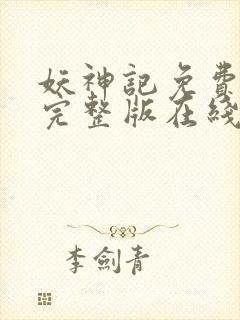 妖神記免費
完整版在綫
李劍青